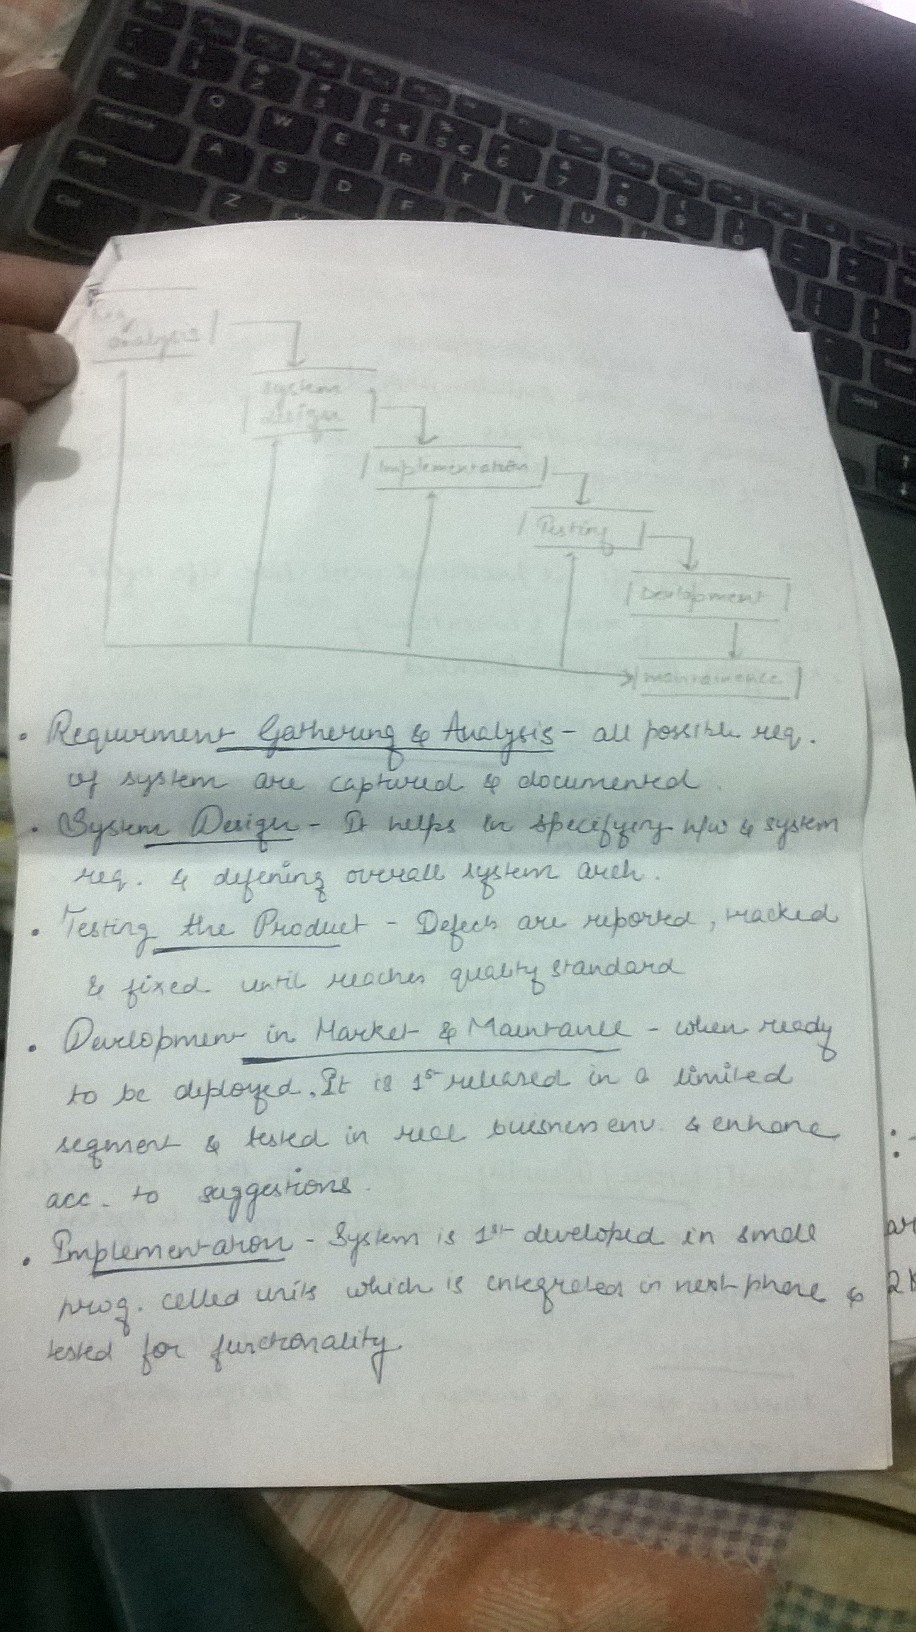 Req.
analysis
System
design
Implementation
Testing
Devlopment
maintainence
• Requirment Gathering & Analysis - all possible req.
of system are captured & documented.
• System Design - It helps in specifying h/w & system
req. & defening overall system arch.
• Testing the Product - Defects are reported, tracked
& fixed until reaches quality standard
• Devlopment in Market & Maintance - when ready
to be deployed. It is 1st released in a limited
segment & tested in real buisness env. & enhance
acc. to suggestions.
• Implementation - System is 1st developed in small
prog. called units which is integrated in next phase &
tested for functionality.